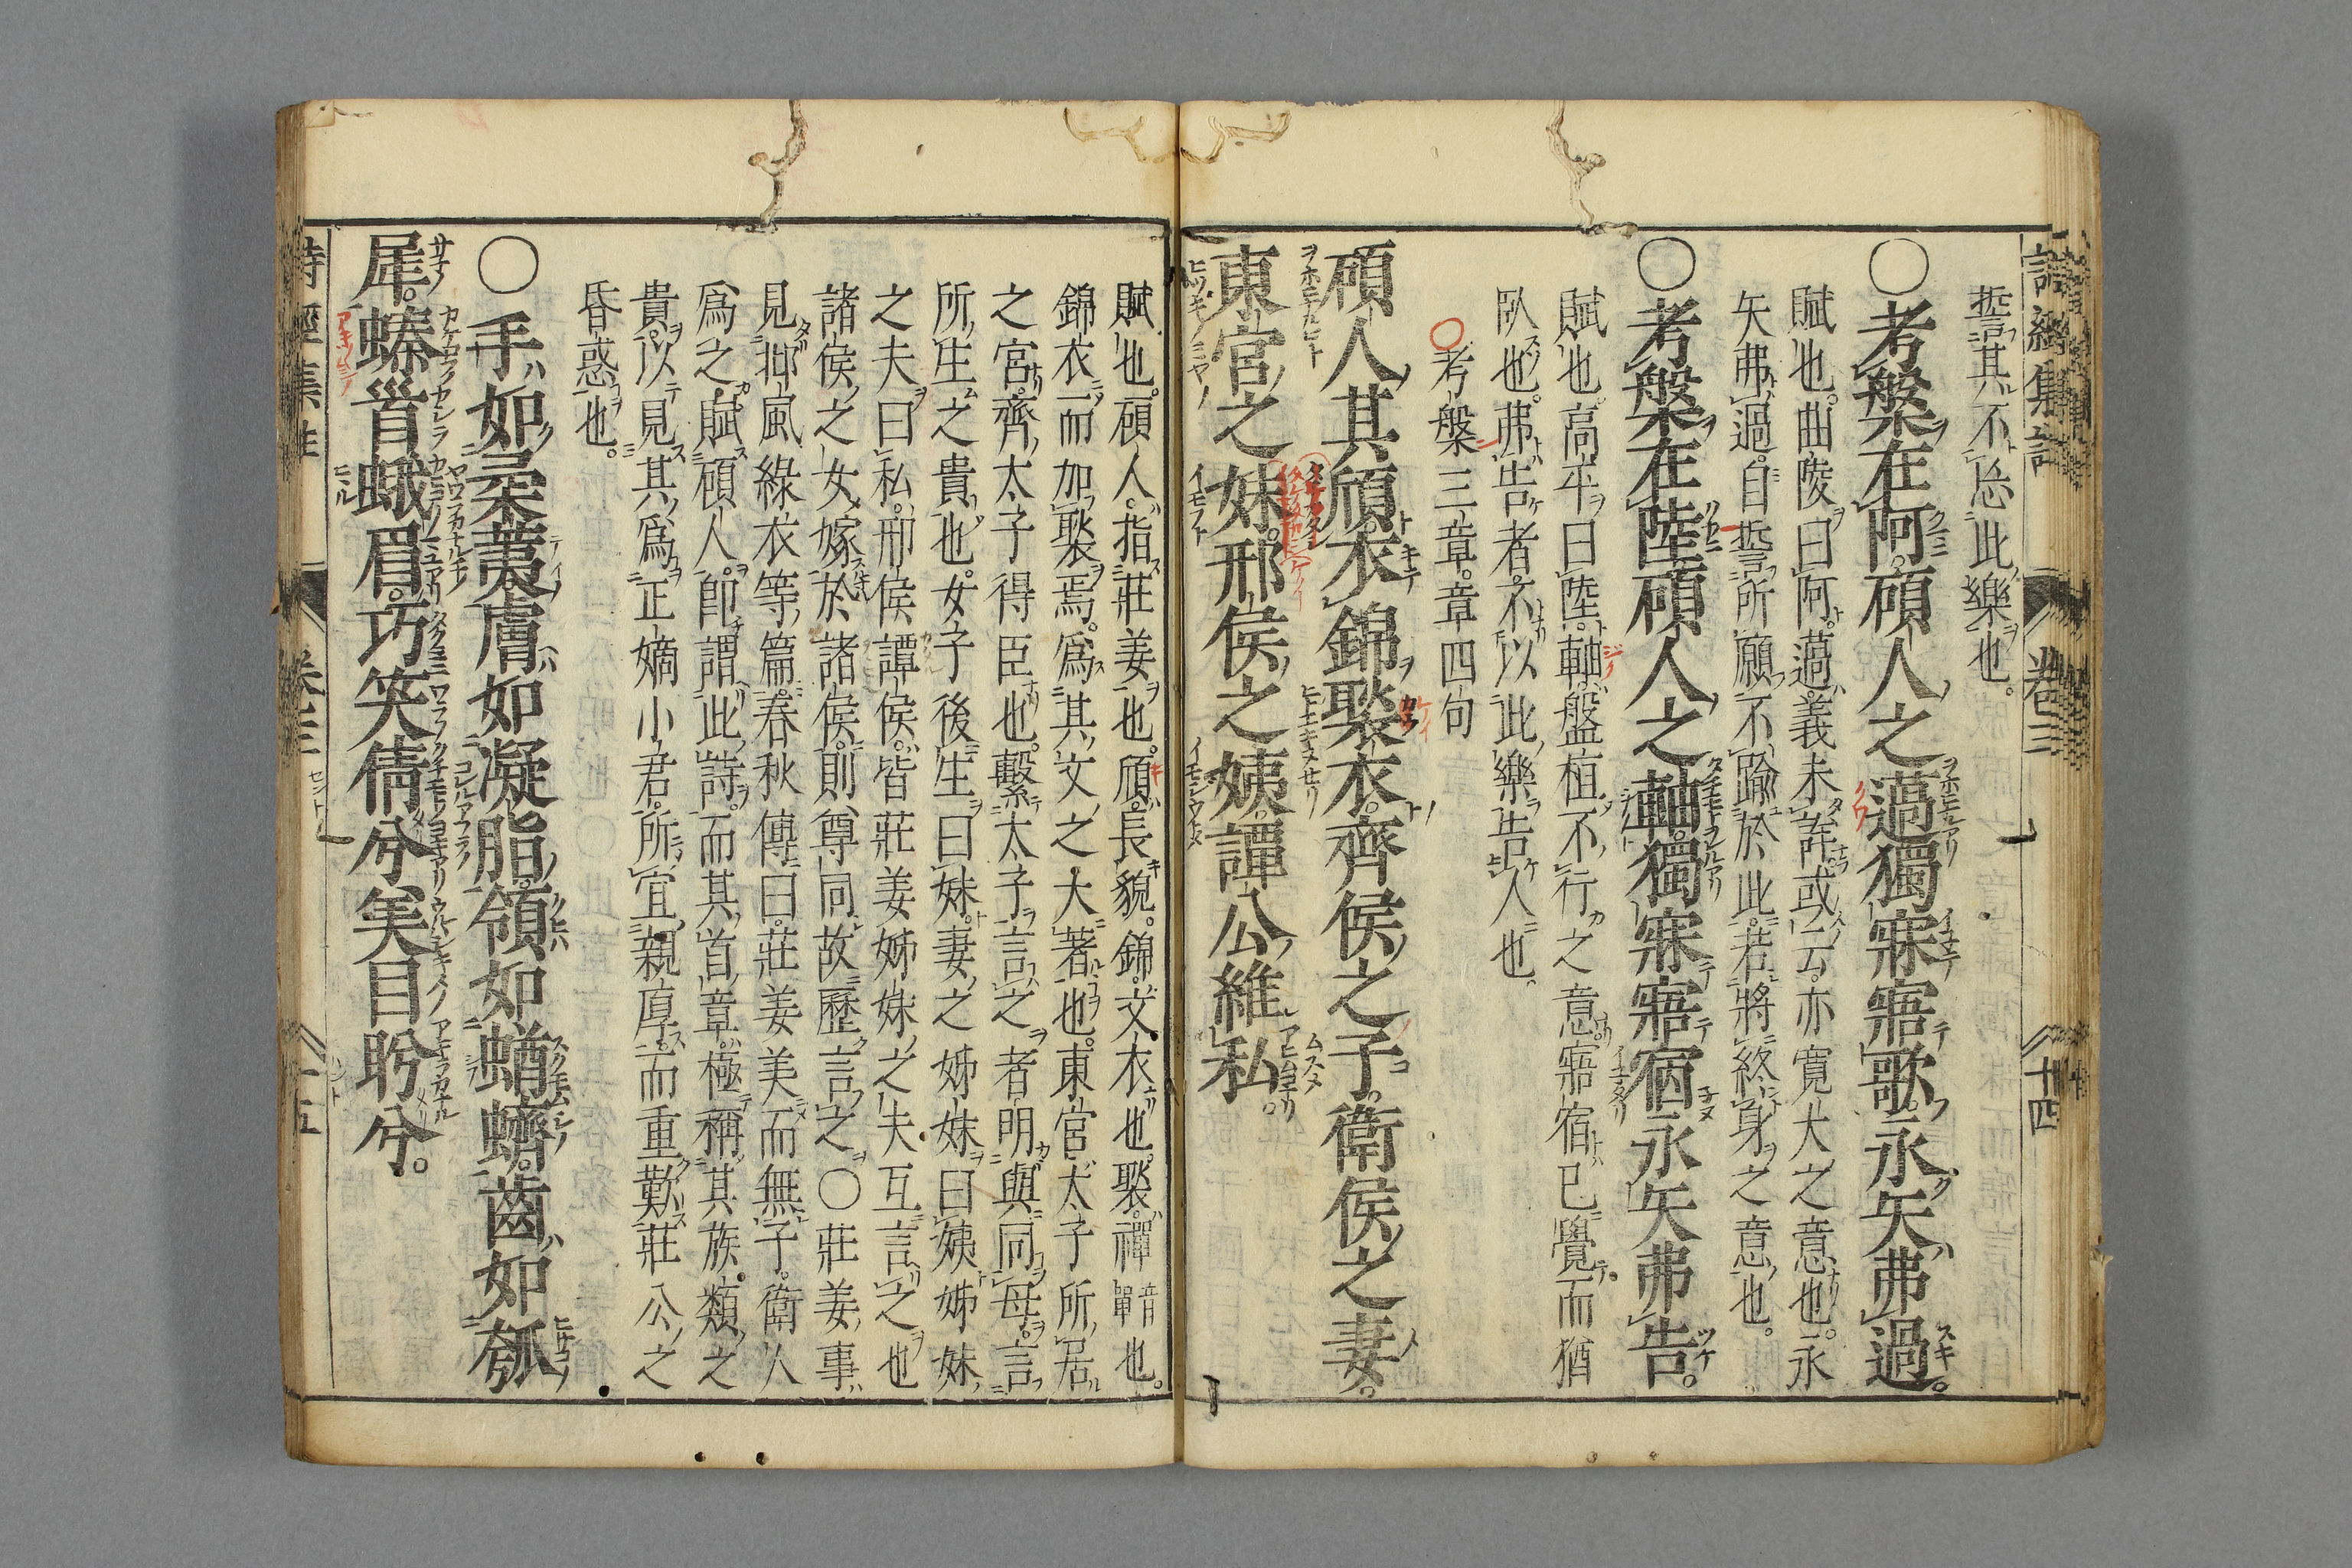 誓其不忘此樂也。
○考槃在阿。碩人之薖。獨寐寤歌。永矢弗過。
賦也。曲陵曰阿。薖義未詳。或云。亦寛大之意也。永
矢弗過。自誓所願不踰於此。若將終身之意也。
○考槃在陸。碩人之軸。獨寐寤宿。永矢弗告。
賦也。高平曰陸。軸盤桓不行之意。寤宿已覺而猶
臥也。弗告者。不以此樂告人也。
○考槃三章。章四句
碩人其頎。衣錦褧衣。齊侯之子。衛侯之妻。
東宮之妹。邢侯之姨。譚公維私。
賦也。碩人。指莊姜也。頎。長貌。錦。文衣也。褧。禪音單也。
錦衣而加褧焉。爲其文之大著也。東宮。太子所居
之宮。齊太子得臣也。繫太子言之者。明與同母。言
所生之貴也。女子後生曰妹。妻之姊妹曰姨。姊妹
之夫曰私。邢侯譚侯。皆莊姜姊妹之夫。互言之也
諸侯之女。嫁於諸侯。則尊同。故歷言之○莊姜事
見邶風綠衣等篇。春秋傳曰。莊姜美而無子。衛人
爲之賦碩人。卽謂此詩。而其首章。極稱其族類之
貴。以見其爲正嫡小君。所宜親厚。而重歎莊公之
昏惑也。
○手如柔荑。膚如凝脂。領如蝤蠐。齒如瓠
犀。螓首蛾眉。巧笑倩兮。美目盼兮。
詩經集註
卷三
十四